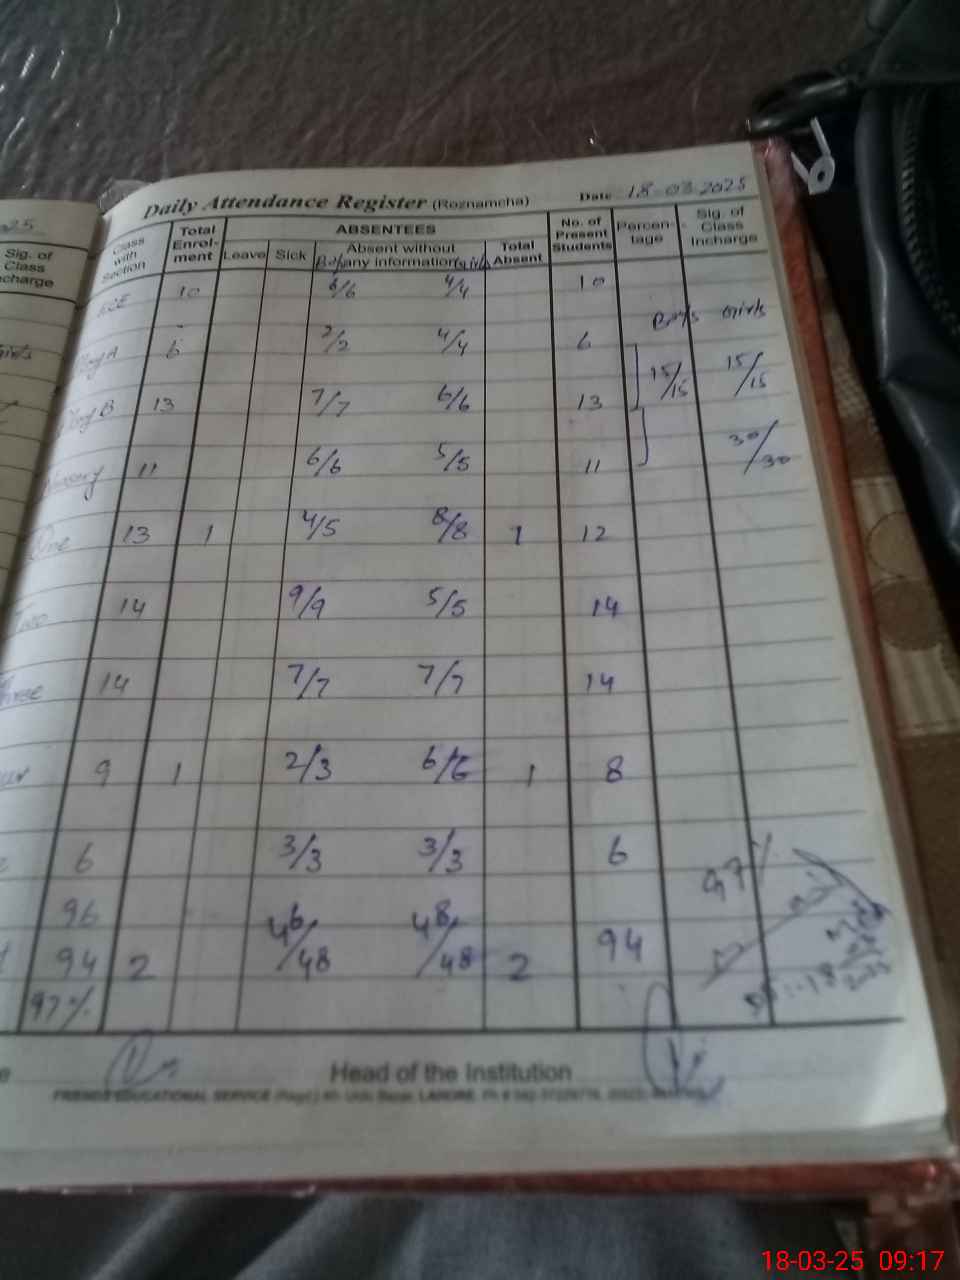 Daily Attendance Register (Roznamcha) Date 18-03-2025
25
Sig. of Class Incharge
Class with Section Total Enrol-ment ABSENTEES No. of Present Students Percen-tage Sig. of Class Incharge
Leave Sick Absent without any information Total Absent
Boys Girls
ECE 10 6/6 4/4 10
Boys Girls
Play A 6 2/2 4/4 6 15/15 15/15
Play B 13 7/7 6/6 13
Nursery 11 6/6 5/5 11 30/30
One 13 1 4/5 8/8 1 12
Two 14 9/9 5/5 14
Three 14 7/7 7/7 14
9 1 2/3 6/6 1 8
6 3/3 3/3 6
96 97%
94 2 46/48 48/48 2 94
97%
Head of the Institution
FRIENDS EDUCATIONAL SERVICE
18-03-25 09:17